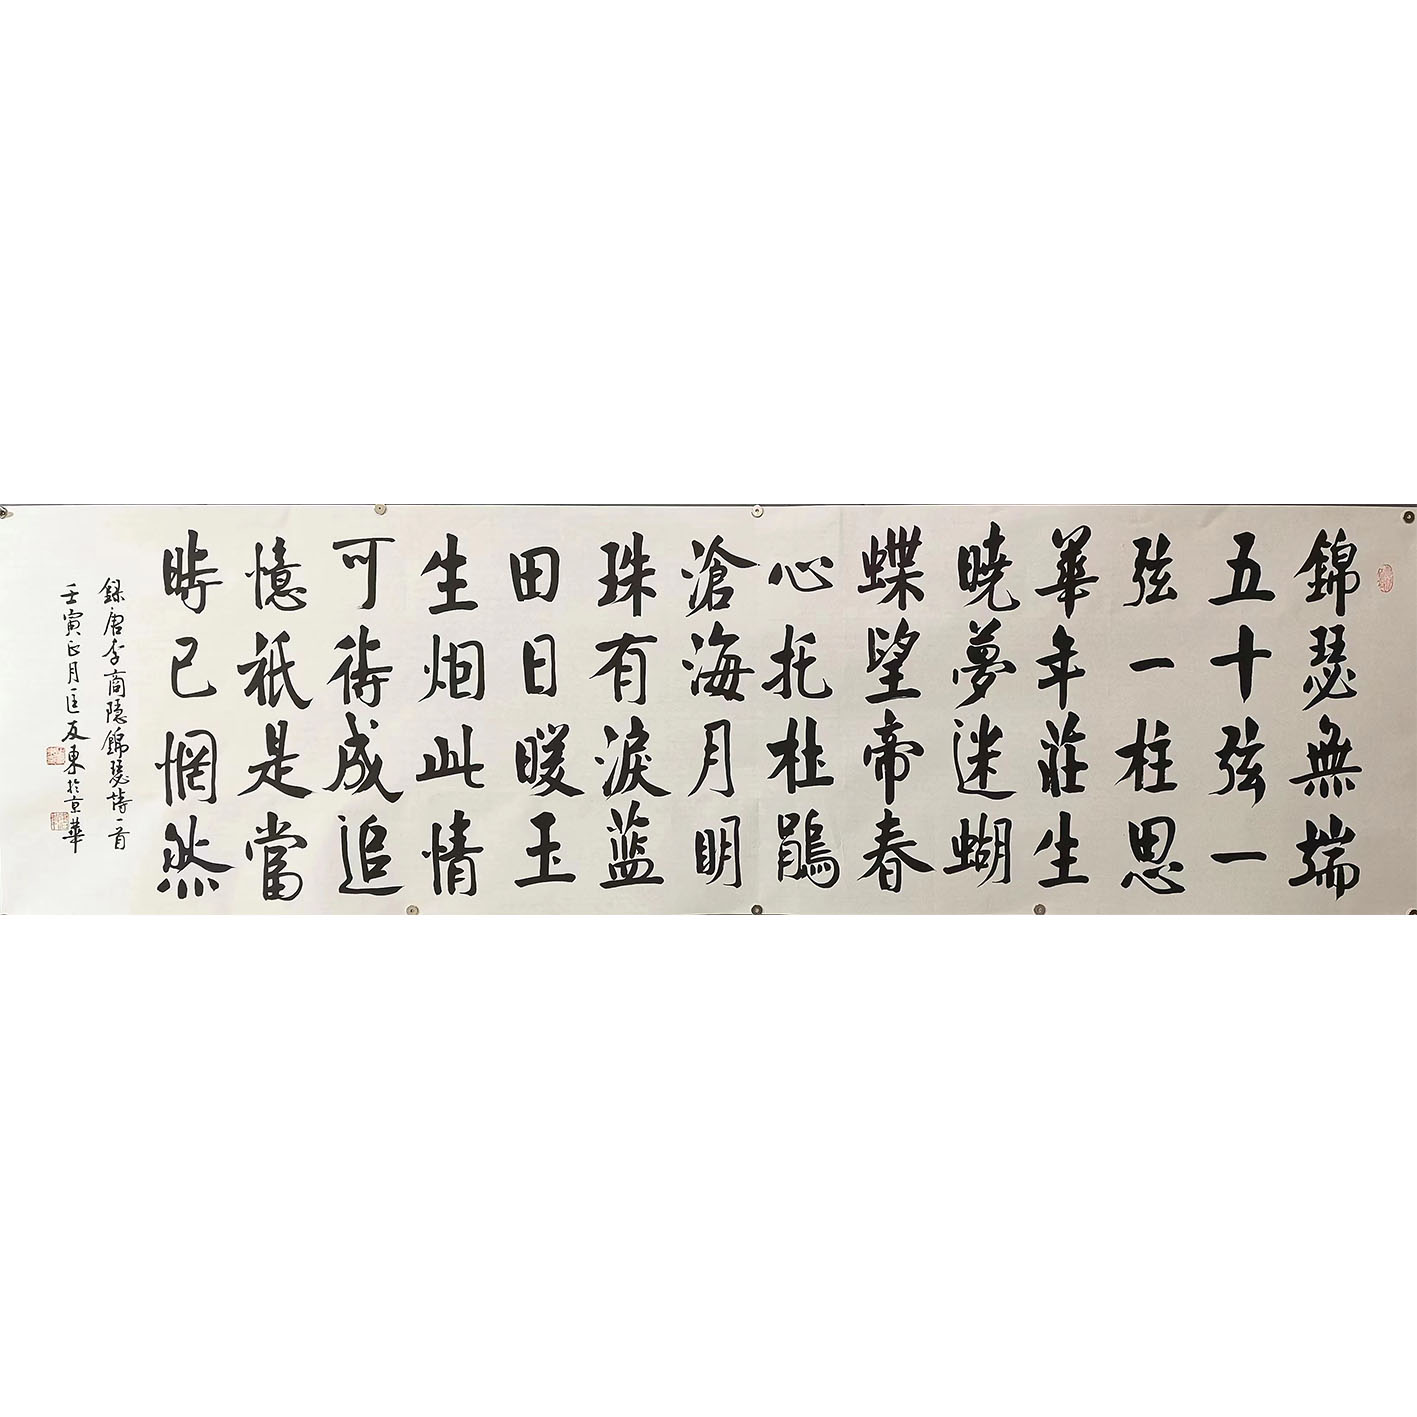 錦瑟無端
五十弦一
弦一柱思
華年莊生
曉夢迷蝴
蝶望帝春
心托杜鵑
滄海月明
珠有淚蓝
田日暖玉
生烟此情
可待成追
憶祇是當
時已惘然
録唐李商隐錦瑟詩一首
壬寅正月匡友東於京華